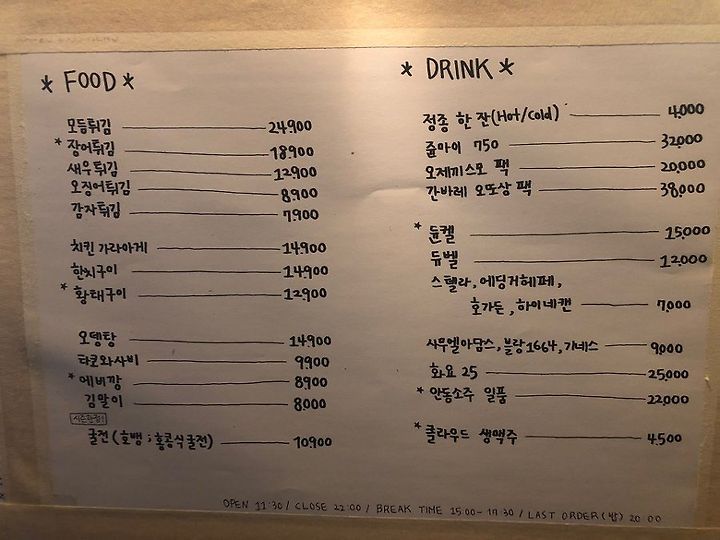 * FOOD *
모듬튀김 24,900
* 장어튀김 18,900
새우튀김 12,900
오징어튀김 8,900
감자튀김 7,900
치킨 가라아게 14,900
한치구이 14,900
* 황태구이 12,900
오뎅탕 14,900
타코와사비 9,900
* 에비깡 8,900
김말이 8,000
시즌한정!
굴전(호뱅;홍콩식굴전) 10,900
* DRINK *
정종 한 잔(Hot/Cold) 4,000
쥰마이 750 32,000
오제끼스모 팩 20,000
간바레 오또상 팩 38,000
* 둔켈 15,000
듀벨 12,000
스텔라, 에딩거헤페,
호가든, 하이네캔 7,000
사무엘아담스, 블랑1664, 기네스 9,000
화요 25 25,000
* 안동소주 일품 22,000
* 클라우드 생맥주 4,500
OPEN 11:30 / CLOSE 22:00 / BREAK TIME 15:00-17:30 / LAST ORDER(밥) 20:00